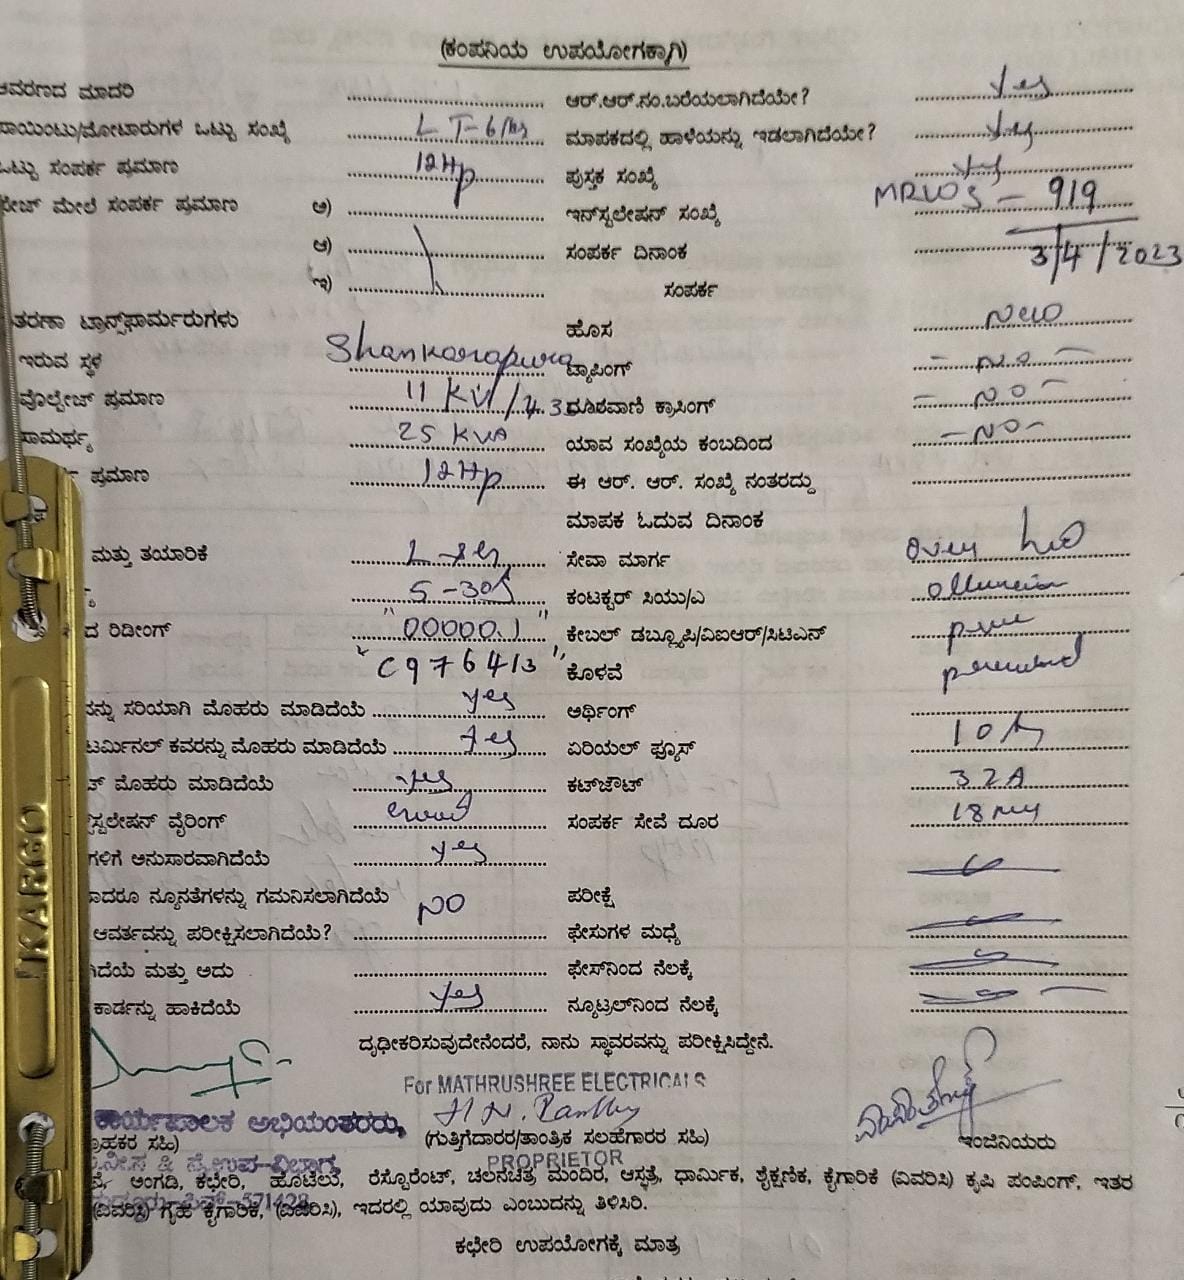 (ಕಂಪನಿಯ ಉಪಯೋಗಕ್ಕಾಗಿ)
ಆವರಣದ ಮಾದರಿ ಆರ್.ಆರ್.ನಂ.ಬರೆಯಲಾಗಿದೆಯೇ? Yes
ಪಾಯಿಂಟು/ಮೋಟಾರುಗಳ ಒಟ್ಟು ಸಂಖ್ಯೆ ಮಾಪಕದಲ್ಲಿ ಹಾಳೆಯನ್ನು ಇಡಲಾಗಿದೆಯೇ? Yes
ಒಟ್ಟು ಸಂಪರ್ಕ ಪ್ರಮಾಣ 12Hp ಪುಸ್ತಕ ಸಂಖ್ಯೆ
ಮೇಲೆ ಸಂಪರ್ಕ ಪ್ರಮಾಣ ಅ) ಇನ್‌ಸ್ಟಲೇಷನ್ ಸಂಖ್ಯೆ 919
ಆ) ಸಂಪರ್ಕ ದಿನಾಂಕ 3/4/2023
ಇ) ಸಂಪರ್ಕ
ತರಣಾ ಟ್ರಾನ್ಸ್‌ಫಾರ್ಮರುಗಳು ಹೊಸ New
ಇರುವ ಸ್ಥಳ Shankarapura ಟ್ಯಾಪಿಂಗ್ - NO -
ವೊಲ್ಟೇಜ್ ಪ್ರಮಾಣ 11 KV/.43 ದೂರವಾಣಿ ಕ್ರಾಸಿಂಗ್ - NO -
ಸಾಮರ್ಥ್ಯ 25 KVA ಯಾವ ಸಂಖ್ಯೆಯ ಕಂಬದಿಂದ - NO -
ಪ್ರಮಾಣ 12Hp ಈ ಆರ್. ಆರ್. ಸಂಖ್ಯೆ ನಂತರದ್ದು
ಮಾಪಕ ಓದುವ ದಿನಾಂಕ
ಮತ್ತು ತಯಾರಿಕೆ ಸೇವಾ ಮಾರ್ಗ
5-30A ಕಂಟಕ್ಟರ್ ಸಿಯು/ಎ
ದ ರಿಡೀಂಗ್ "00000.1" ಕೇಬಲ್ ಡಬ್ಲ್ಯೂಪಿ/ವಿಐಆರ್/ಸಿಟಿಎನ್
"C976413" ಕೊಳವೆ
ನ್ನು ಸರಿಯಾಗಿ ಮೊಹರು ಮಾಡಿದೆಯೆ yes ಅರ್ಥಿಂಗ್
ಟರ್ಮಿನಲ್ ಕವರನ್ನು ಮೊಹರು ಮಾಡಿದೆಯೆ yes ಏರಿಯಲ್ ಫ್ಯೂಸ್ 10A
ಟ್ ಮೊಹರು ಮಾಡಿದೆಯೆ yes ಕಟ್‌ಔಟ್ 32A
ಸ್ಟಲೇಷನ್ ವೈರಿಂಗ್ ಸಂಪರ್ಕ ಸೇವೆ ದೂರ 18
ಗಳಿಗೆ ಅನುಸಾರವಾಗಿದೆಯೆ yes
ಾದರೂ ನ್ಯೂನತೆಗಳನ್ನು ಗಮನಿಸಲಾಗಿದೆಯೆ NO ಪರೀಕ್ಷೆ
ಆವರ್ತವನ್ನು ಪರೀಕ್ಷಿಸಲಾಗಿದೆಯೆ? ಫೇಸುಗಳ ಮಧ್ಯೆ
ಗಿದೆಯೆ ಮತ್ತು ಅದು ಫೇಸ್‌ನಿಂದ ನೆಲಕ್ಕೆ
ಕಾರ್ಡನ್ನು ಹಾಕಿದೆಯೆ Yes ನ್ಯೂಟ್ರಲ್‌ನಿಂದ ನೆಲಕ್ಕೆ
ದೃಢೀಕರಿಸುವುದೇನೆಂದರೆ, ನಾನು ಸ್ಥಾವರವನ್ನು ಪರೀಕ್ಷಿಸಿದ್ದೇನೆ.
For MATHRUSHREE ELECTRICALS
ಕಾರ್ಯಪಾಲಕ ಅಭಿಯಂತರರು,
ಗ್ರಾಹಕರ ಸಹಿ) (ಗುತ್ತಿಗೆದಾರರ/ತಾಂತ್ರಿಕ ಸಲಹೆಗಾರರ ಸಹಿ) ಇಂಜಿನಿಯರು
PROPRIETOR
ಅಂಗಡಿ, ಕಛೇರಿ, ಹೊಟೇಲು, ರೆಸ್ಟೋರೆಂಟ್, ಚಲನಚಿತ್ರ ಮಂದಿರ, ಆಸ್ಪತ್ರೆ, ಧಾರ್ಮಿಕ, ಶೈಕ್ಷಣಿಕ, ಕೈಗಾರಿಕೆ (ವಿವರಿಸಿ) ಕೃಷಿ ಪಂಪಿಂಗ್, ಇತರ
(ವಿವರಿಸಿ) ಗೃಹ ಕೈಗಾರಿಕೆ, (ವಿವರಿಸಿ), ಇದರಲ್ಲಿ ಯಾವುದು ಎಂಬುದನ್ನು ತಿಳಿಸಿರಿ.
ಕಛೇರಿ ಉಪಯೋಗಕ್ಕೆ ಮಾತ್ರ
KARGO